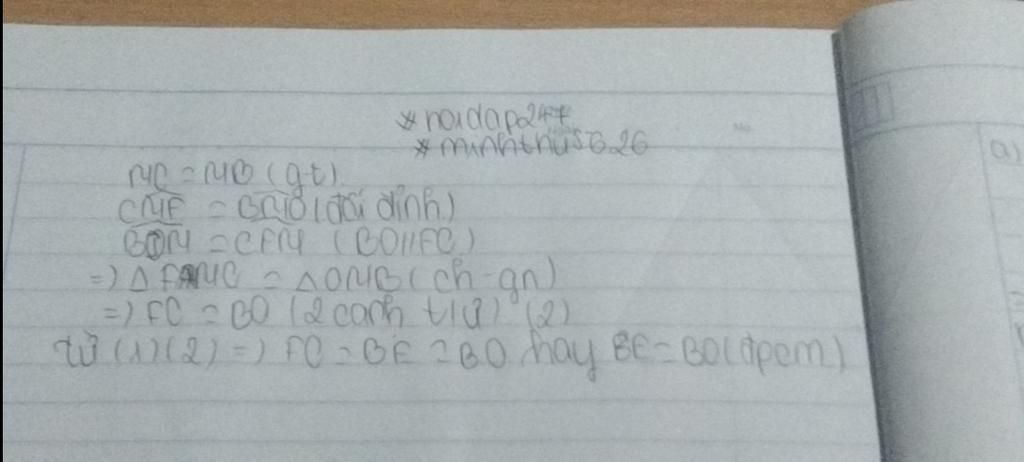 #hoidap247
#minhthus5626
MC = MB (gt)
CMF = BMO (đối đỉnh)
BOM = CFM (BO//FC)
=) △ FMC = △ OMB (ch-gn)
=) FC = BO (2 cạnh t/ứ) (2)
từ (1)(2) =) FC = BE = BO hay BE = BO (đpcm)
a)